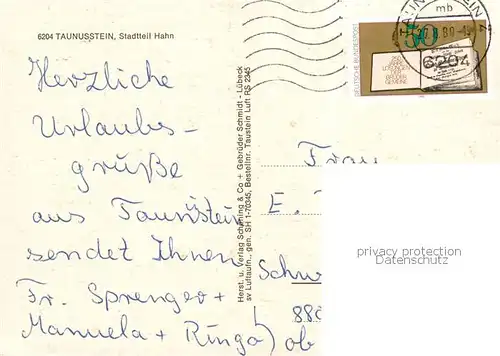 6204 TAUNUSSTEIN, Stadtteil Hahn
Herzliche
Urlaubs-
grüße
aus Taunusstein
sendet Ihnen
Fr. Sprenger +
Manuela + Ringo
Herst. u. Verlag Schöning & Co + Gebrüder Schmidt - Lübeck
sv Luftaufn., gen. SH 1-70345, Bestellnr. Taustein Luft RS 2345
mb
6204
DEUTSCHE BUNDESPOST
50
250
JAHRE
LOSUNGEN
DER
BRÜDER-
GEMEINE
Frau
E.
Schw
880
ob
privacy protection
Datenschutz